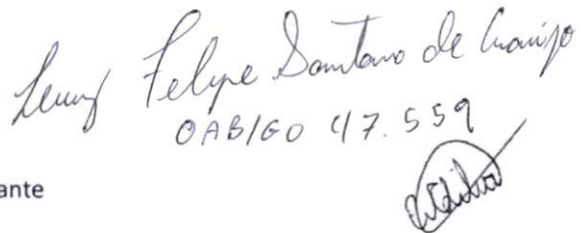 Felipe Santana de Araújo
OAB/GO 47.559
ante